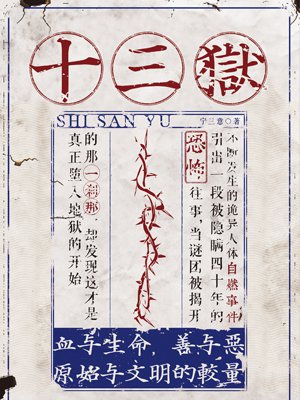 十三獄
SHI SAN YU
宁三意◎著
不断发生的诡异人体自燃事件
引出一段被隐瞒四十年的
恐怖往事，当谜团被揭开
的那一刹那，却发现这才是
真正堕入地狱的开始
血与生命，善与惡
原始与文明的較量